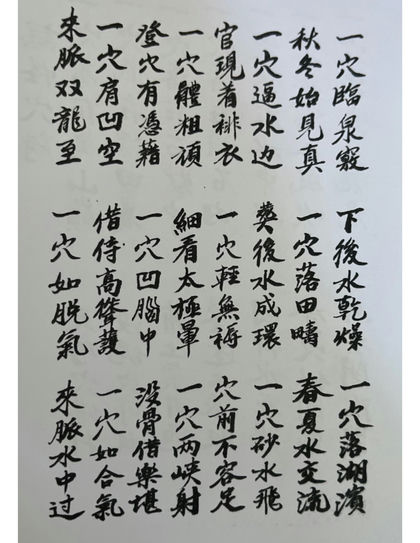 一穴臨泉竅 下後水乾燥 一穴落湖濱
秋冬始見真 一穴落田疇 春夏水交流
一穴逼水边 葬後水成環 一穴砂水飛
官現着裶衣 一穴輕無褥 穴前不容足
一穴體粗頑 細看太極暈 一穴兩峽射
登穴有憑藉 一穴凹腦中 没骨借樂堪
一穴肩凹空 借侍高聳護 一穴如合氣
来脈双龍至 一穴如脱氣 来脈水中过